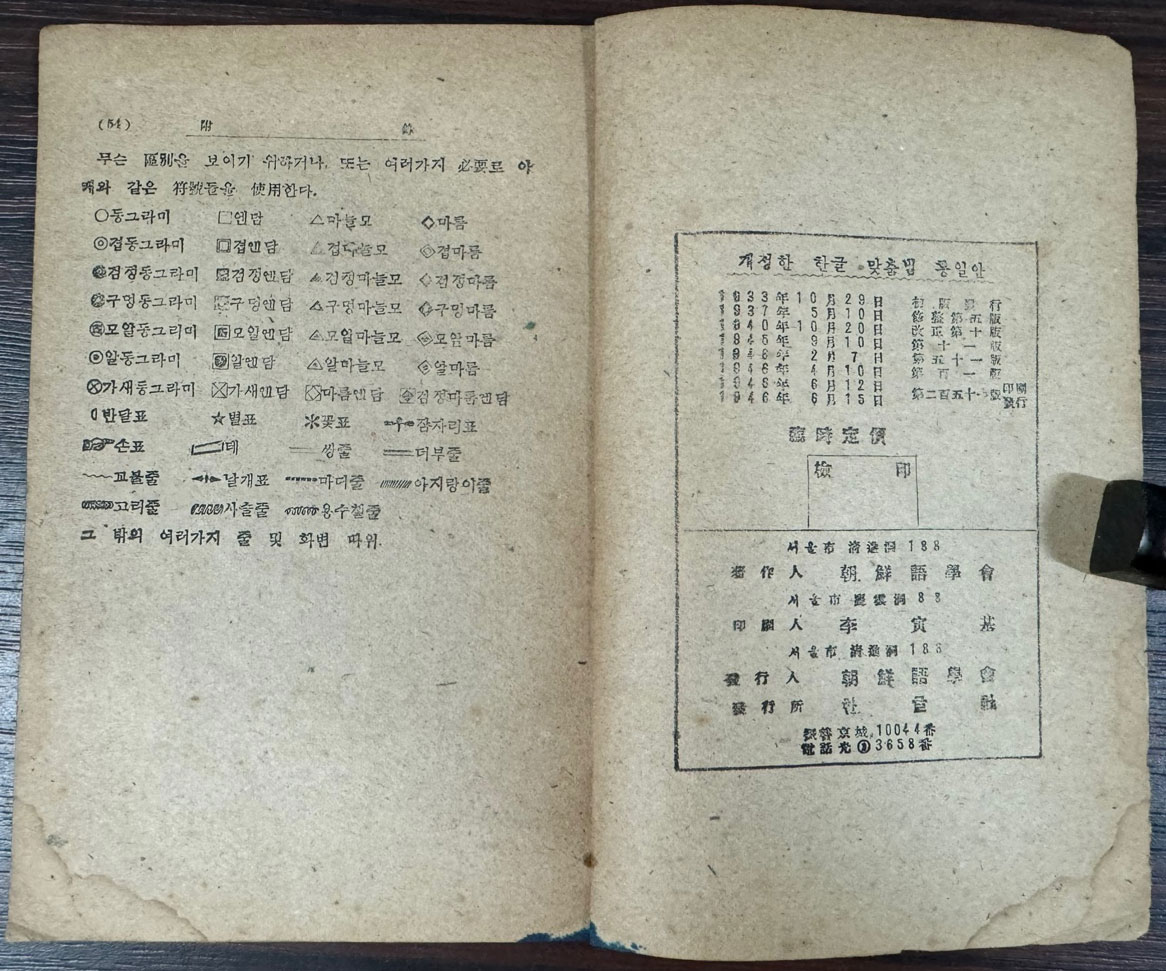 (54) 附 錄
무슨 區別을 보이기 위하거나, 또는 여러가지 必要로 아
래와 같은 符號들을 使用한다.
○동그라미 □엔담 △마늘모 ◇마름
◎겹동그라미 겹엔담 겹마늘모 겹마름
검정동그라미 검정엔담 검정마늘모 검정마름
구멍동그라미 구멍엔담 구멍마늘모 구멍마름
모알동그라미 모알엔담 모알마늘모 모알마름
알동그라미 알엔담 알마늘모 알마름
가새동그라미 가새엔담 마름엔담 검정마름엔담
반달표 ☆별표 꽃표 잠자리표
손표 테 쌍줄 더부줄
꼬불줄 날개표 마디줄 아지랑이줄
고리줄 사슬줄 용수철줄
그 밖의 여러가지 줄 및 화변 따위.
개정한 한글 맞춤법 통일안
1933年10月29日 初版發行
1937年 5月10日 修整第五版
1940年10月20日 改正第十版
1945年 9月10日 第十一版
1946年 2月 7日 第五十一版
1946年 4月10日 第百一版
1946年 6月12日 第二百五十一版印刷
1946年 6月15日 發行
臨時定價
檢 印
서울市 淸進洞 188
著作人 朝鮮語學會
서울市 洞 88
印刷人 李寅基
서울市 淸進洞 188
發行人 朝鮮語學會
發行所 社
振替京城 10044番
電話光③3658番